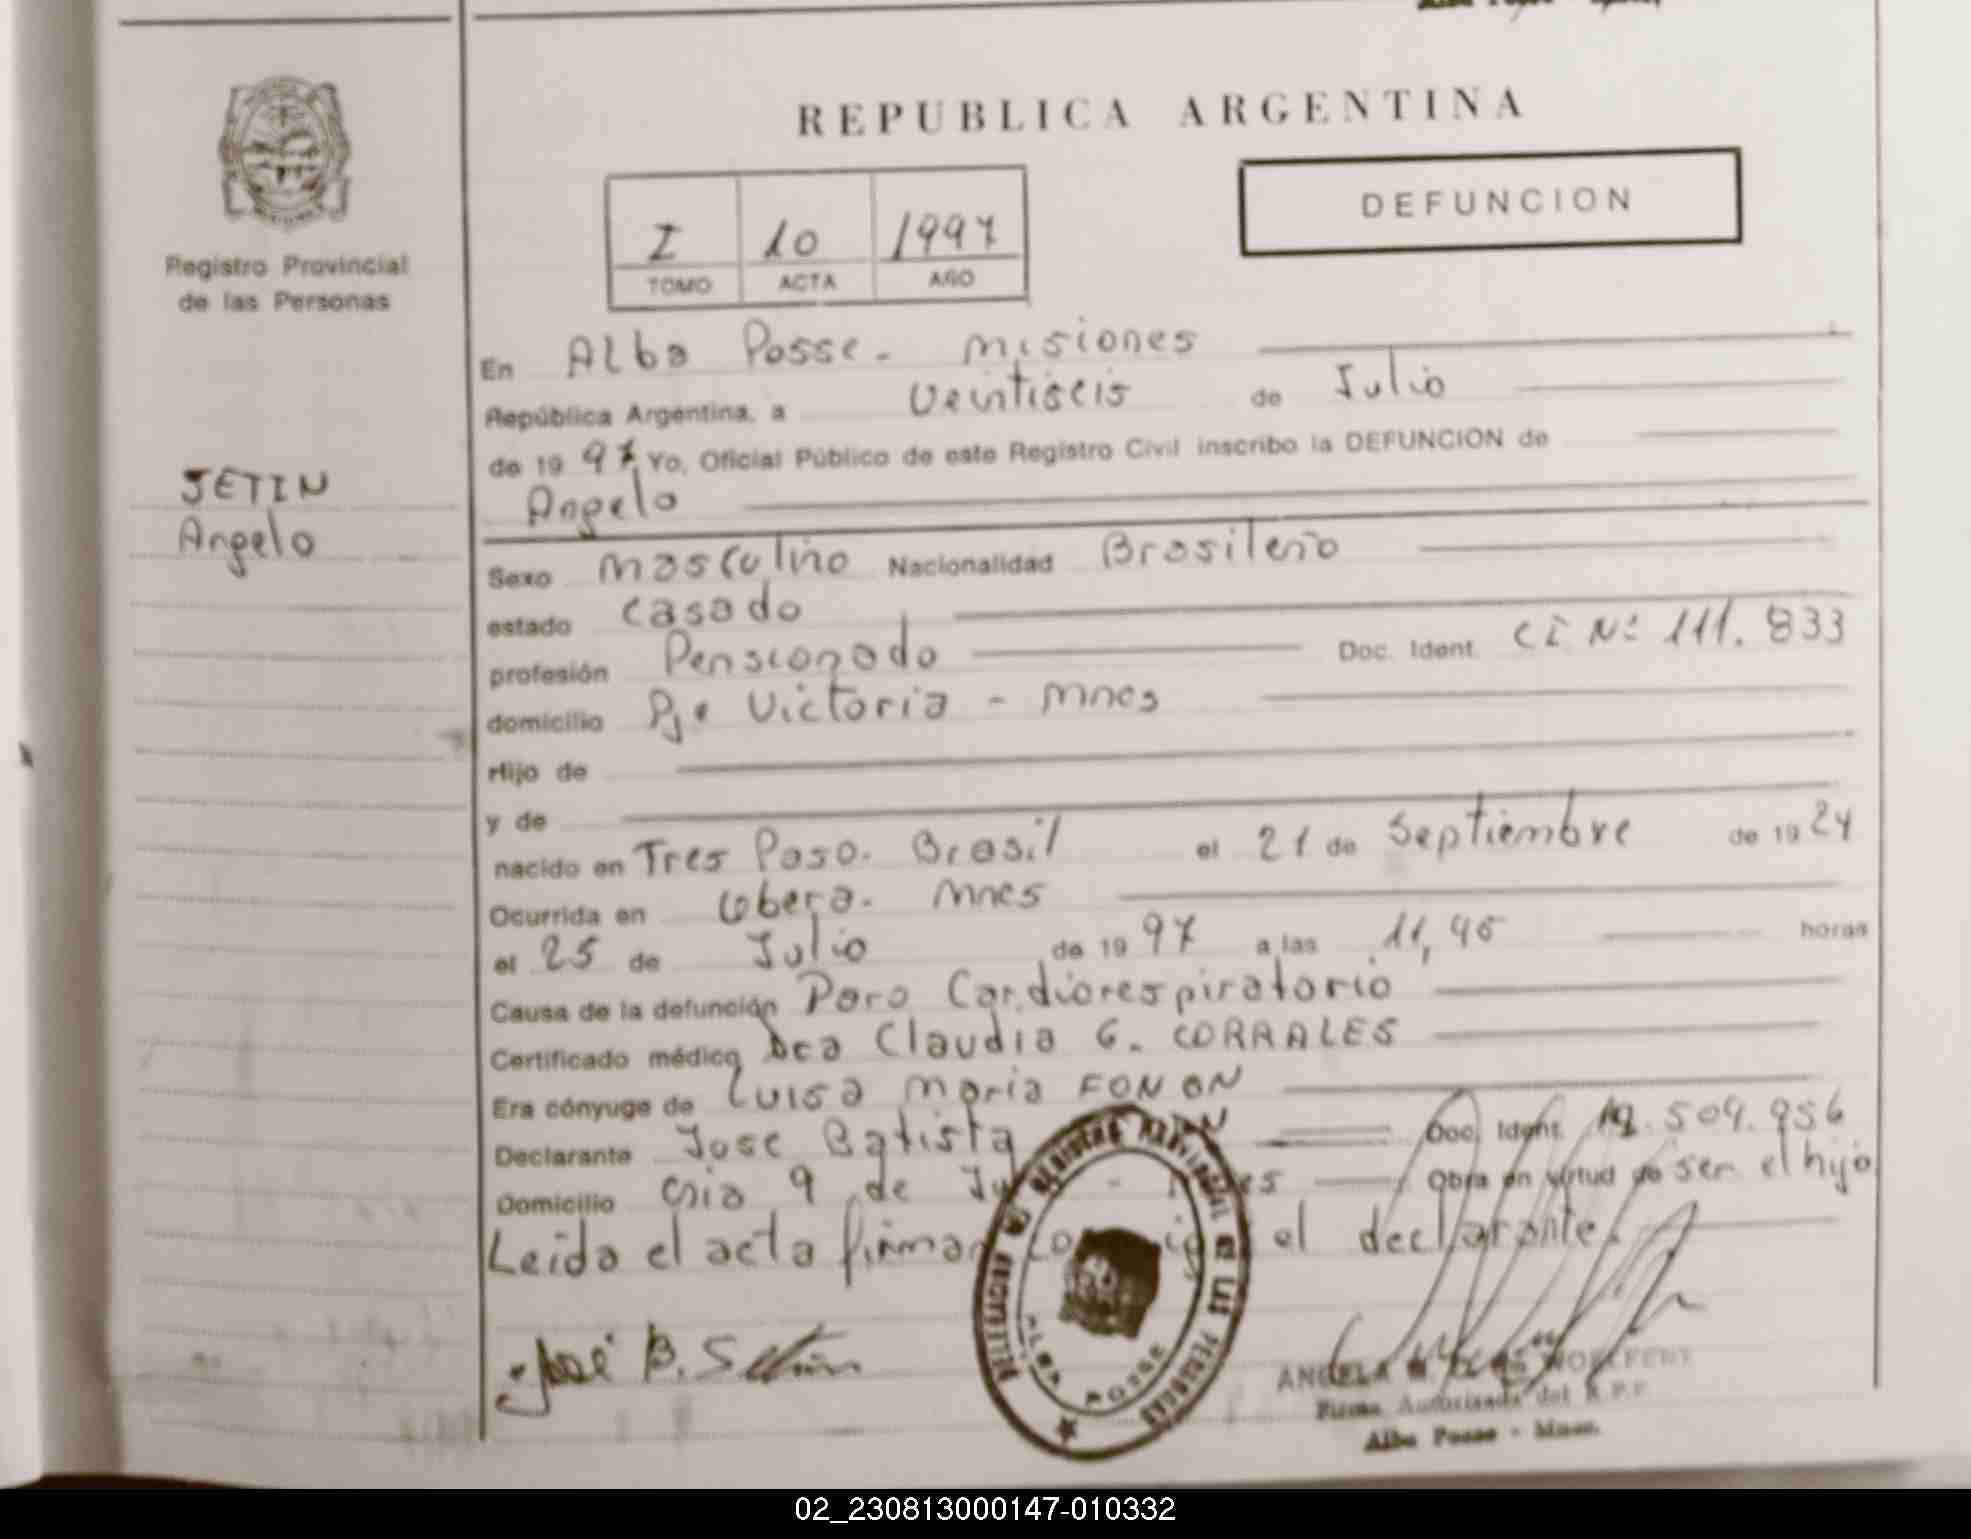 REPUBLICA ARGENTINA
DEFUNCION
I 10 1997
TOMO ACTA AÑO
Registro Provincial
de las Personas
JETIN
Angelo
En Alba Posse - Misiones
República Argentina, a Veintiseis de Julio
de 19 97 Yo, Oficial Público de este Registro Civil inscribo la DEFUNCION de
Angelo
Sexo Masculino Nacionalidad Brasileño
estado Casado
profesión Pensionado Doc. Ident. CI Nº 111.833
domicilio Pje Victoria - Mnes
Hijo de
y de
nacido en Tres Paso. Brasil el 21 de Septiembre de 19 24
Ocurrida en Obera. Mnes
el 25 de Julio de 19 97 a las 11,45 horas
Causa de la defunción Paro Cardiorespiratorio
Certificado médico Dra Claudia G. CORRALES
Era cónyuge de Luisa Maria
Declarante Jose Batista Doc. Ident. 509.956
Domicilio 9 de Obra en virtud de ser el hijo
Leida el acta firman el declarante
José B.
DELEGACION DEL REGISTRO PROVINCIAL DE LAS PERSONAS
ALBA POSSE
ANGELA
Firma Autorizada del R.P.P.
Alba Posse - Mnes.
02_230813000147-010332